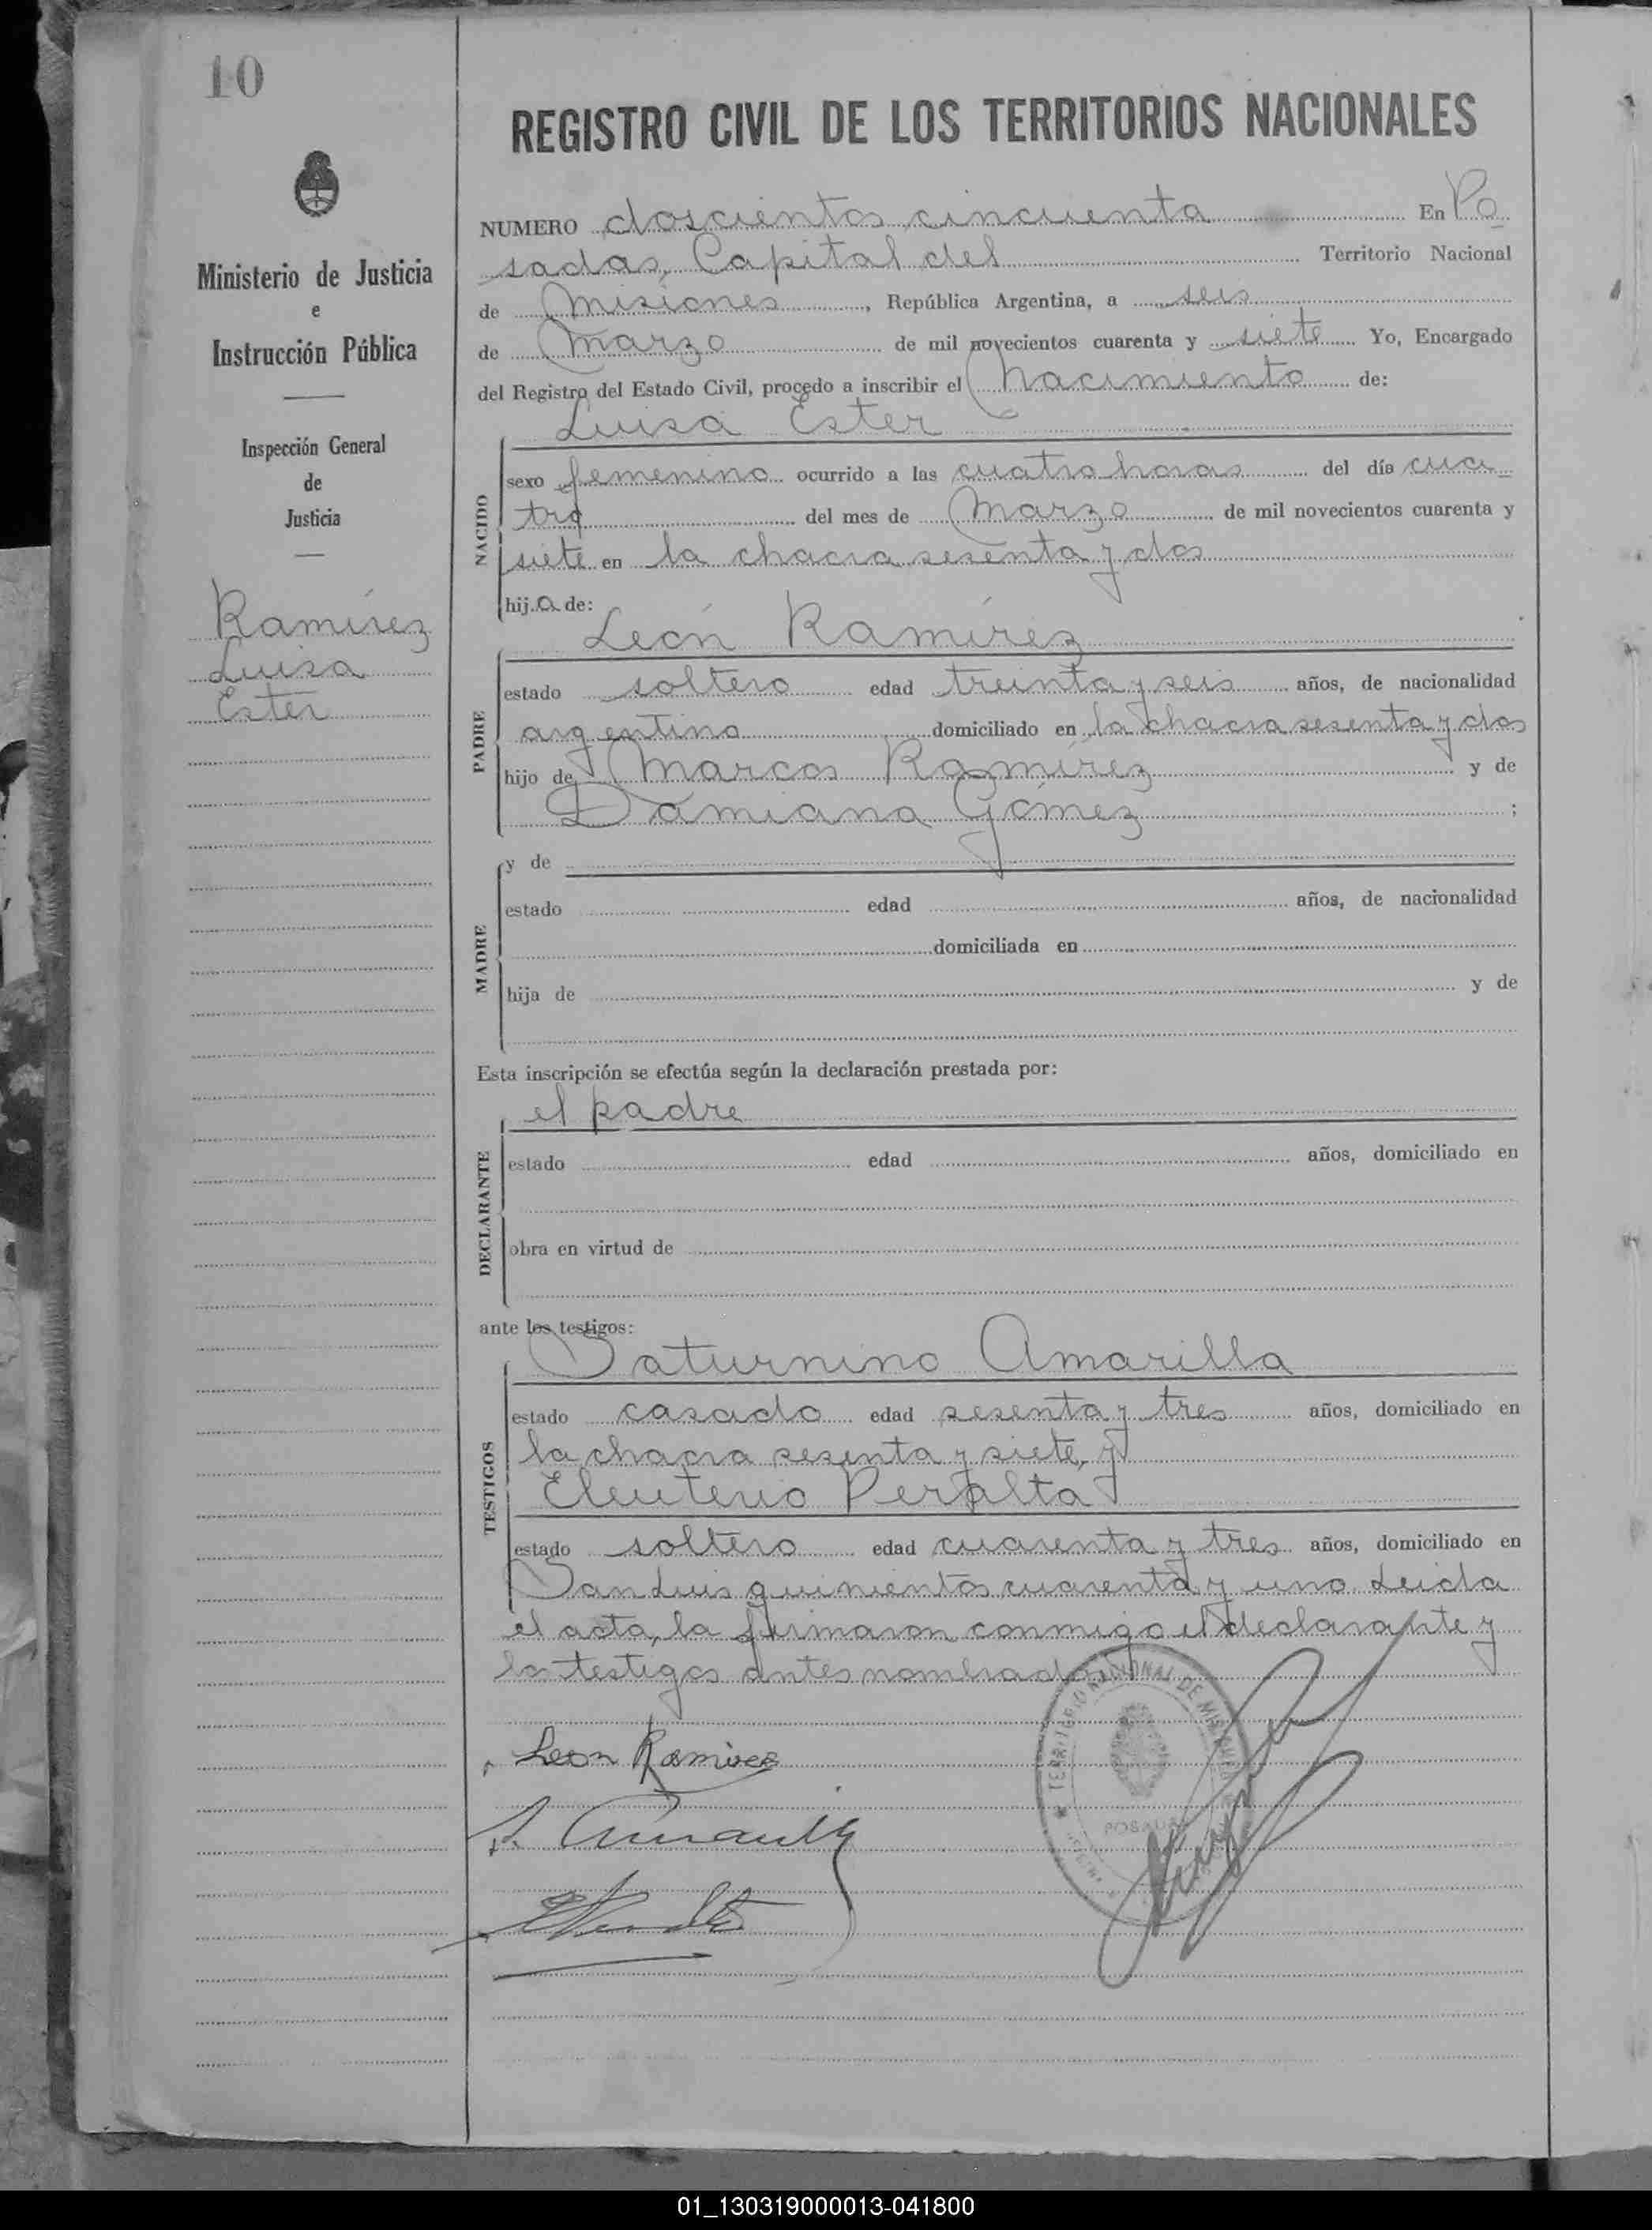 10
REGISTRO CIVIL DE LOS TERRITORIOS NACIONALES
Ministerio de Justicia
e
Instrucción Pública
Inspección General
de
Justicia
Ramírez
Luisa
Ester
NUMERO doscientos cincuenta En Po
sadas, Capital del Territorio Nacional
de Misiones, República Argentina, a seis
de Marzo de mil novecientos cuarenta y siete Yo, Encargado
del Registro del Estado Civil, procedo a inscribir el Nacimiento de:
Luisa Ester
NACIDO
sexo femenino ocurrido a las cuatro horas del día cua
tro del mes de Marzo de mil novecientos cuarenta y
siete en la chacra sesenta y dos
hija de:
León Ramírez
PADRE
estado soltero edad treinta y seis años, de nacionalidad
argentino domiciliado en la chacra sesenta y dos
hijo de Marcos Ramírez y de
Damiana Gómez ;
MADRE
y de
estado edad años, de nacionalidad
domiciliada en
hija de y de
Esta inscripción se efectúa según la declaración prestada por:
el padre
DECLARANTE
estado edad años, domiciliado en
obra en virtud de
ante los testigos:
Saturnino Amarilla
TESTIGOS
estado casado edad sesenta y tres años, domiciliado en
la chacra sesenta y siete, y
Eleuterio Peralta
estado soltero edad cuarenta y tres años, domiciliado en
San Luis quinientos cuarenta y uno. Leida
el acta, la firmaron conmigo el declarante y
los testigos antes nombrados
Leon Ramirez
S. Amarilla
TERRITORIO NACIONAL DE MISIONES
POSADAS
01_130319000013-041800